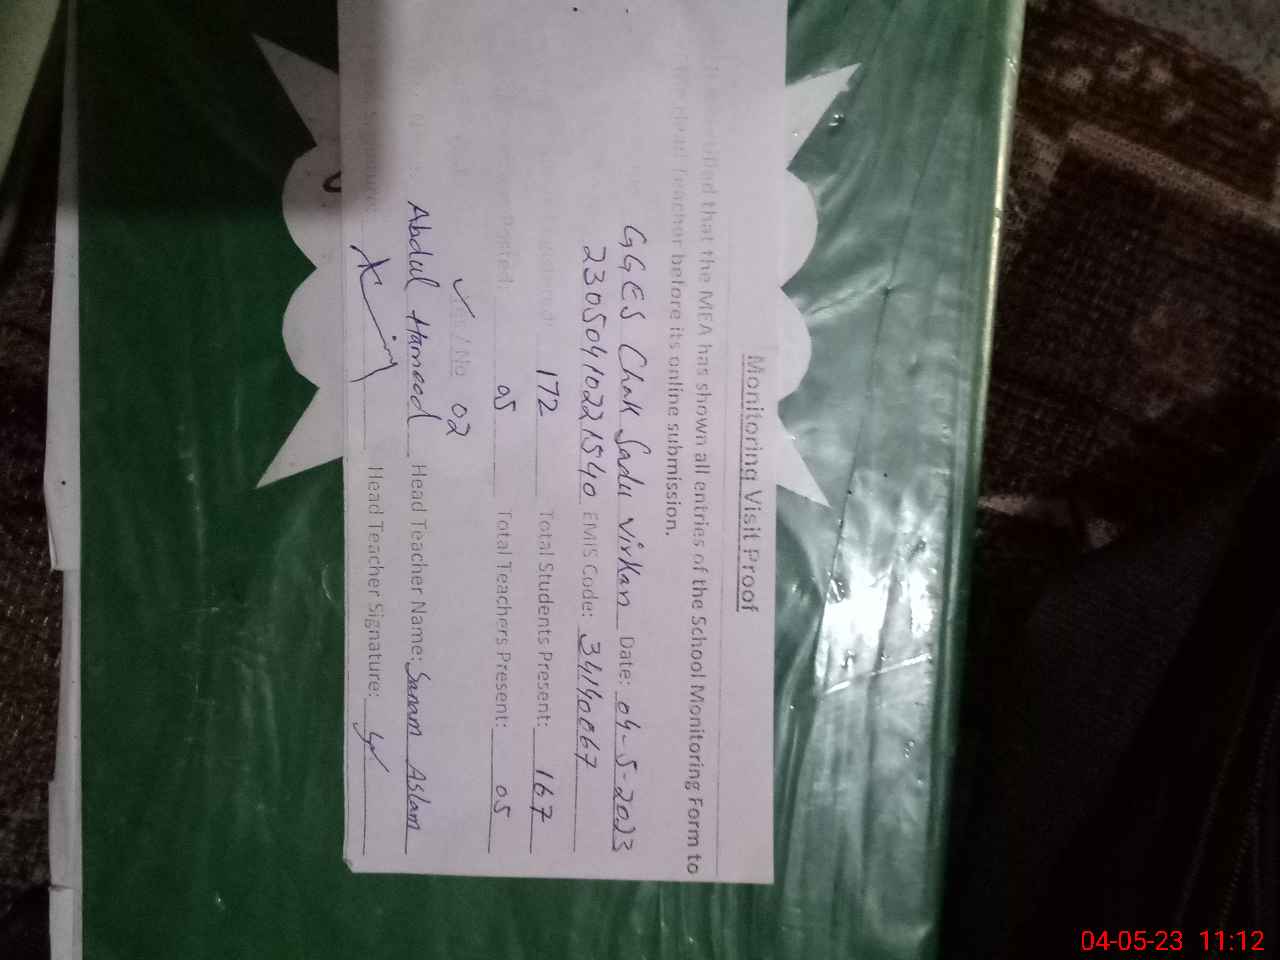 Monitoring Visit Proof
that the MEA has shown all entries of the School Monitoring Form to
Teacher before its online submission.
GGES Chak Sadu Virkan Date: 04-5-2023
23050410221540 EMIS Code: 34140067
172 Total Students Present: 167
Posted: 05 Total Teachers Present: 05
Yes / No 02
Abdul Hameed Head Teacher Name: Sanam Aslam
Head Teacher Signature:
04-05-23 11:12